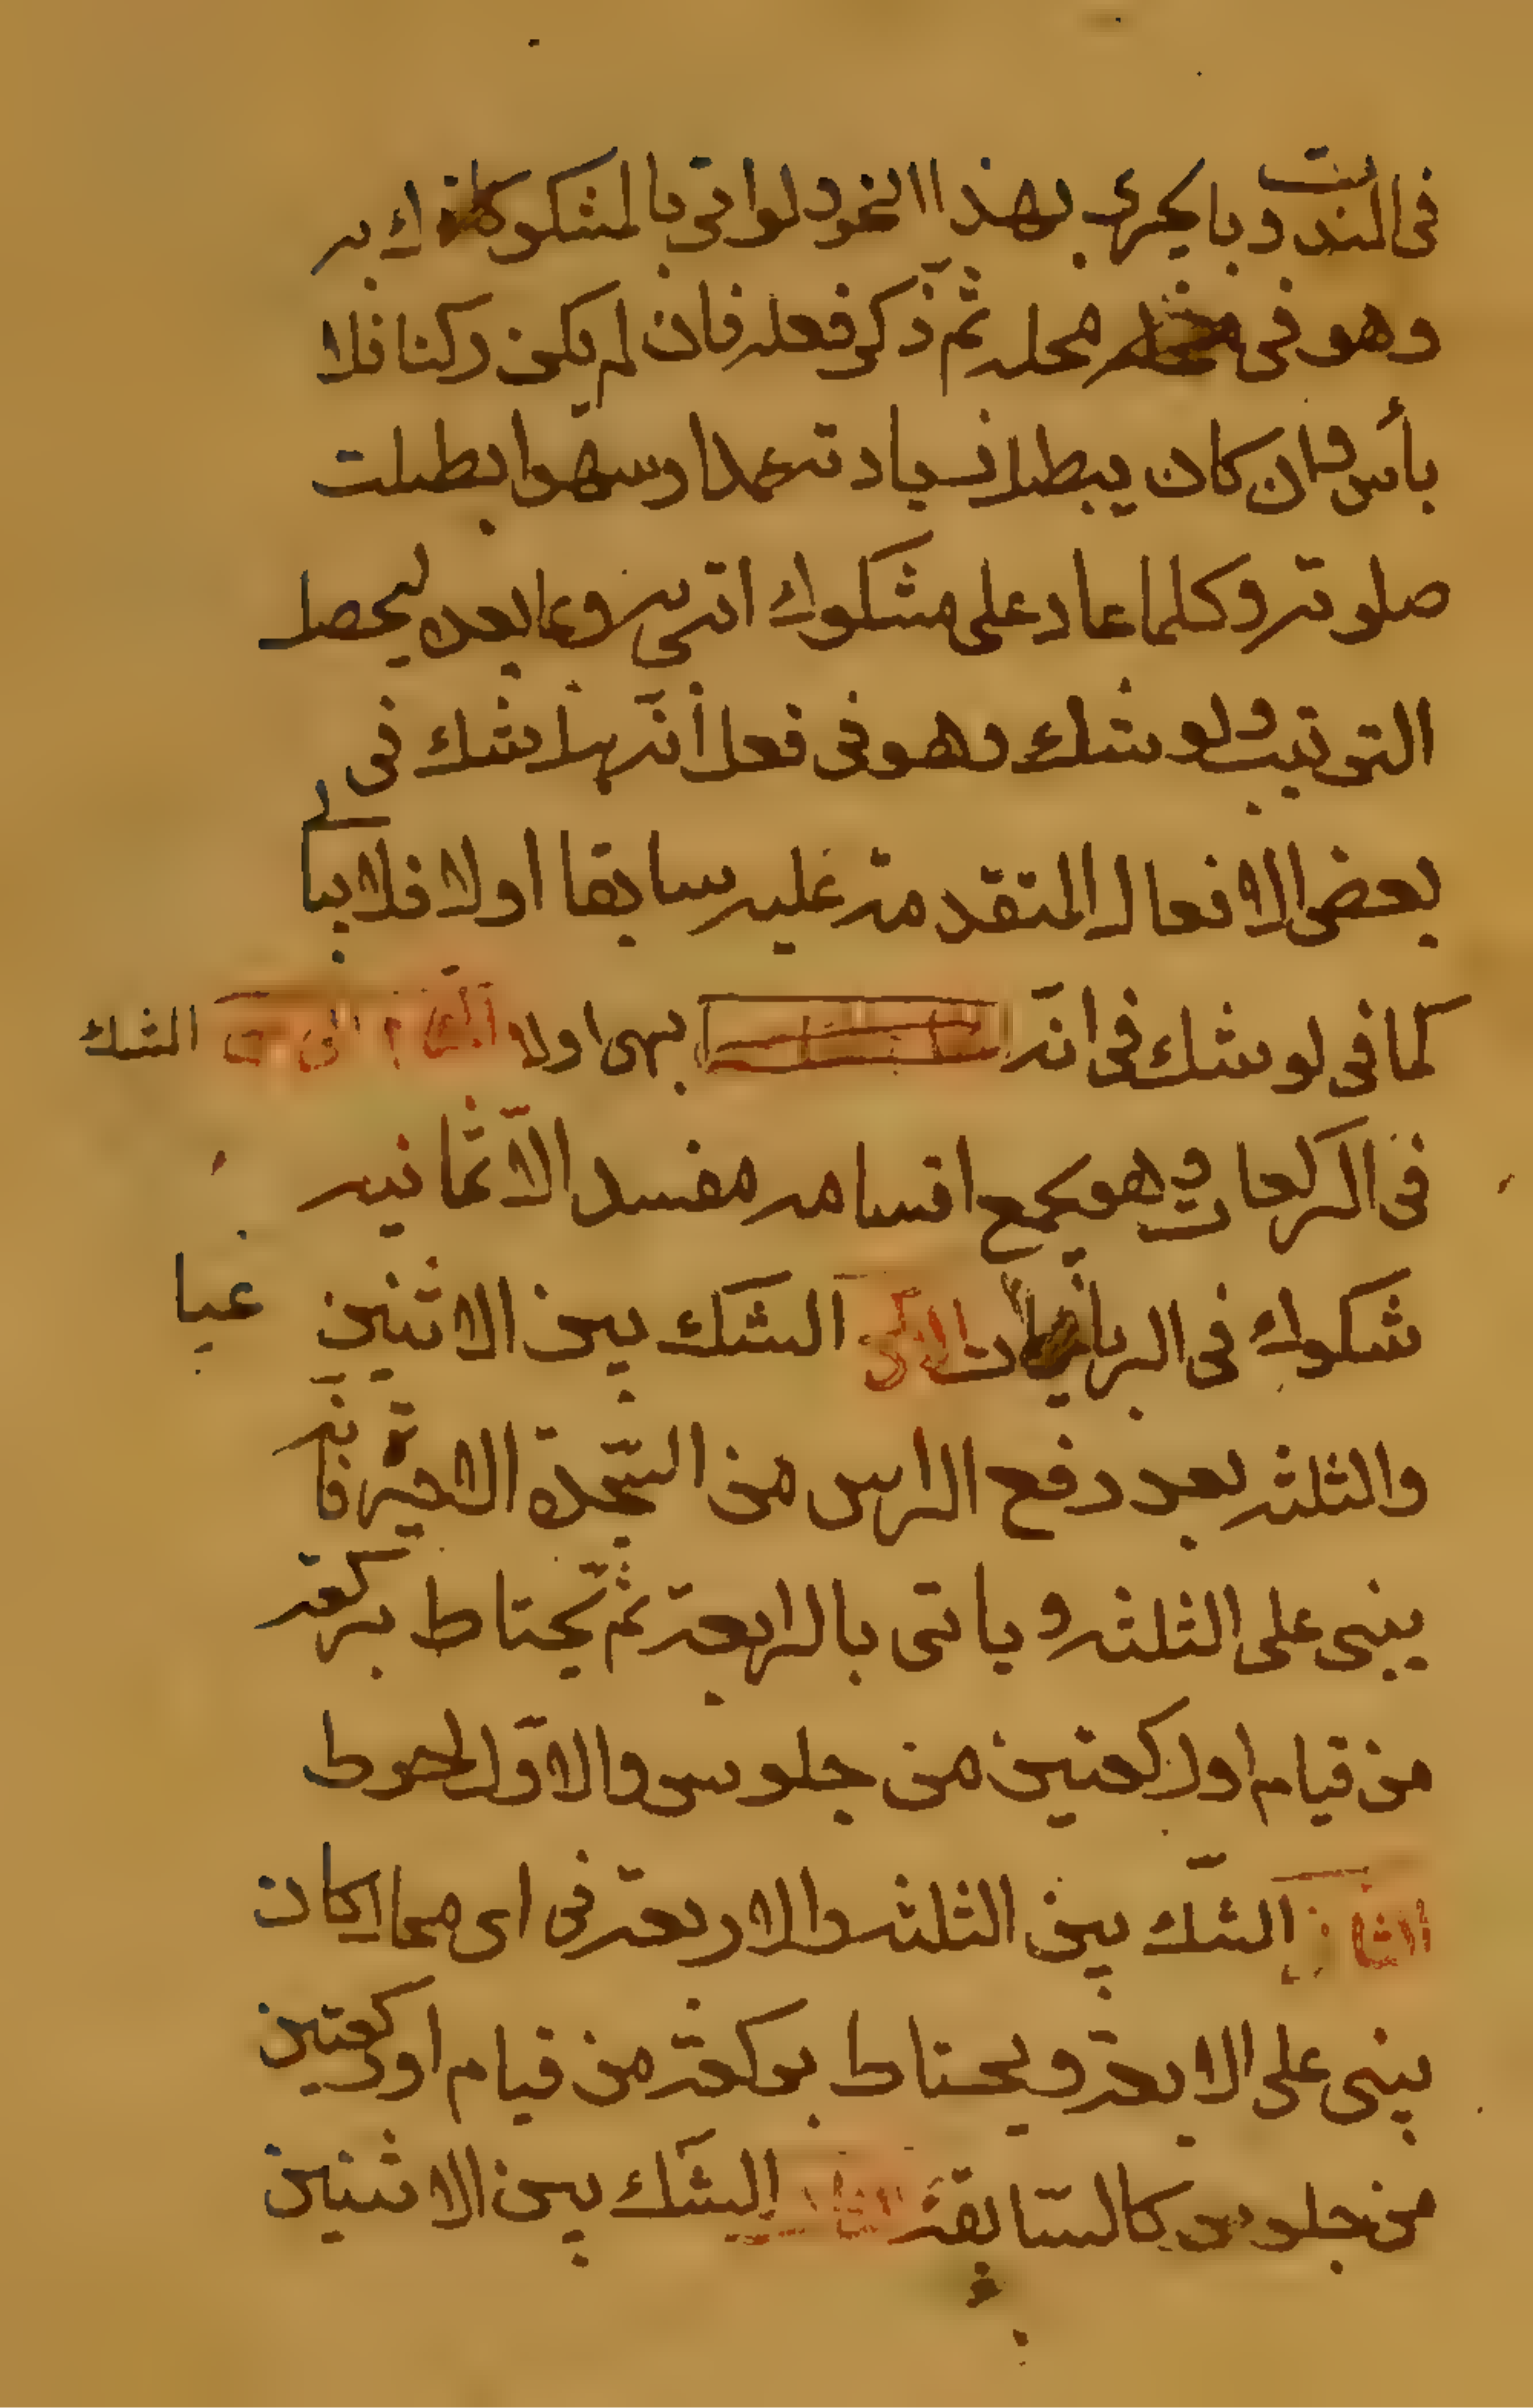 في الندب و بالجري بهذا النحو ولو اتى بالمشكوك فيه
وهو في محله ثم ذكر فعله فان لم يكن ركنا فلا
بأس وان كان يبطل زيادته عمدا وسهوا بطلت
صلوته وكلما عاد على مشكوك اتى به وبما بعده ليحصل
الترتيب ولو شك وهو في فعل أنه هل شك في
بعض الافعال المتقدمة عليه سابقا اولا فلا يبالي
كما في لو شك في انه سهى اولا الشك
في الركعات وهو بجميع اقسامه مفسد الا ثمانيه
شكوك في الرباعيات الاول الشك بين الاثنين
والثلثه بعد رفع الراس من السجدة الاخيرة فانه
يبني على الثلثه و ياتي بالرابعة ثم يحتاط بركعة
من قيام او ركعتين من جلوس والاول احوط
الثاني الشك بين الثلثه والاربعة في اي مما كان
يبني على الاربعة ويحتاط بركعة من قيام او ركعتين
من جلوس كالسابقة الشك بين الاثنين